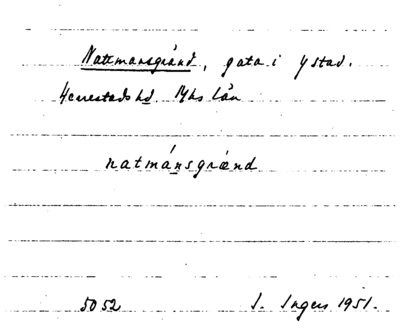 Nattmansgränd, gata i Ystad.
Herrestads hd Mhs län
natmánsgrænd
5052 I. Ingers 1951.